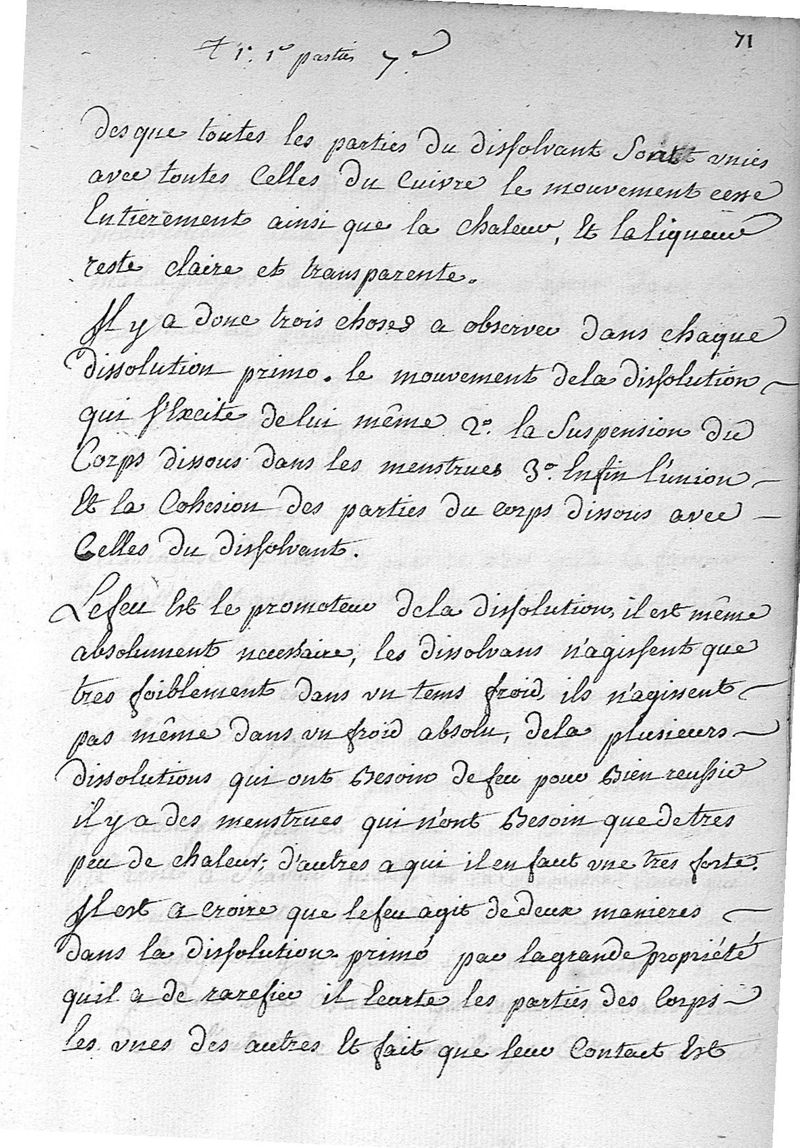 71
T 1er 1ere partie 7e
des que toutes les parties du dissolvant sont unies
avec toutes celles du cuivre le mouvement cesse
Entierement ainsi que la chaleur, Et la liqueur
reste claire et transparente.
Il y a donc trois choses a observer dans chaque
dissolution primo. le mouvement de la dissolution
qui s'Excite de lui même 2o. la suspension du
Corps dissous dans les menstrues 3o. Enfin l'union
Et la Cohesion des parties du corps dissous avec
Celles du dissolvant.
Le feu Est le promoteur de la dissolution, il est même
absolument necessaire, les dissolvans n'agissent que
tres foiblement dans un tems froid, ils n'agissent
pas même dans un froid absolu, de la plusieurs
dissolutions qui ont Besoin de feu pour Bien reussir
il y a des menstrues qui n'ont Besoin que de tres
peu de chaleur; d'autres a qui il en faut une tres forte.
Il est a croire que le feu agit de deux manieres
dans la dissolution primó par la grande propriété
quil a de rarefier il Ecarte les parties des Corps
les unes des autres Et fait que leur Contact Est